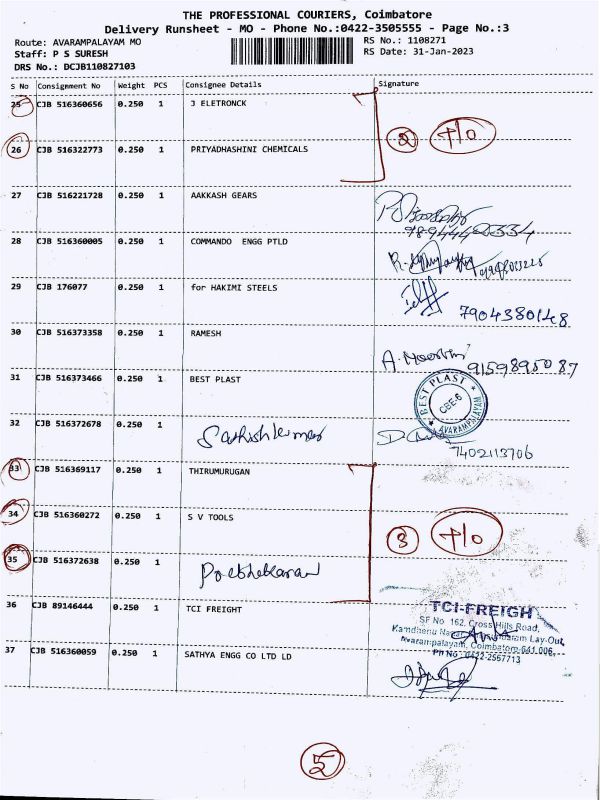 THE PROFESSIONAL COURIERS, Coimbatore
Delivery Runsheet - MO - Phone No.:0422-3505555 - Page No.:3
Route: AVARAMPALAYAM MO RS No.: 1108271
Staff: P S SURESH RS Date: 31-Jan-2023
DRS No.: DCJB110827103
S No Consignment No Weight PCS Consignee Details Signature
25 CJB 516360656 0.250 1 J ELETRONCK
2 T/O
26 CJB 516322773 0.250 1 PRIYADHASHINI CHEMICALS
27 CJB 516221728 0.250 1 AAKKASH GEARS
9894442334
28 CJB 516360005 0.250 1 COMMANDO ENGG PTLD
29 CJB 176077 0.250 1 for HAKIMI STEELS
7904380148
30 CJB 516373358 0.250 1 RAMESH
A. Moorthi 9159895087
31 CJB 516373466 0.250 1 BEST PLAST
BEST PLAST
CBE-6
AVARAMPALAYAM
32 CJB 516372678 0.250 1 Sathishkumar
7402113706
33 CJB 516369117 0.250 1 THIRUMURUGAN
34 CJB 516360272 0.250 1 S V TOOLS
3 T/O
35 CJB 516372638 0.250 1 Prabhakaran
36 CJB 89146444 0.250 1 TCI FREIGHT
TCI-FREIGH
SF No 162, Cross Hills Road,
Kamdhenu Nagar, Lay-Out,
Avarampalayam, Coimbatore-641 006.
PH No 0422-2567713
37 CJB 516360059 0.250 1 SATHYA ENGG CO LTD LD
5